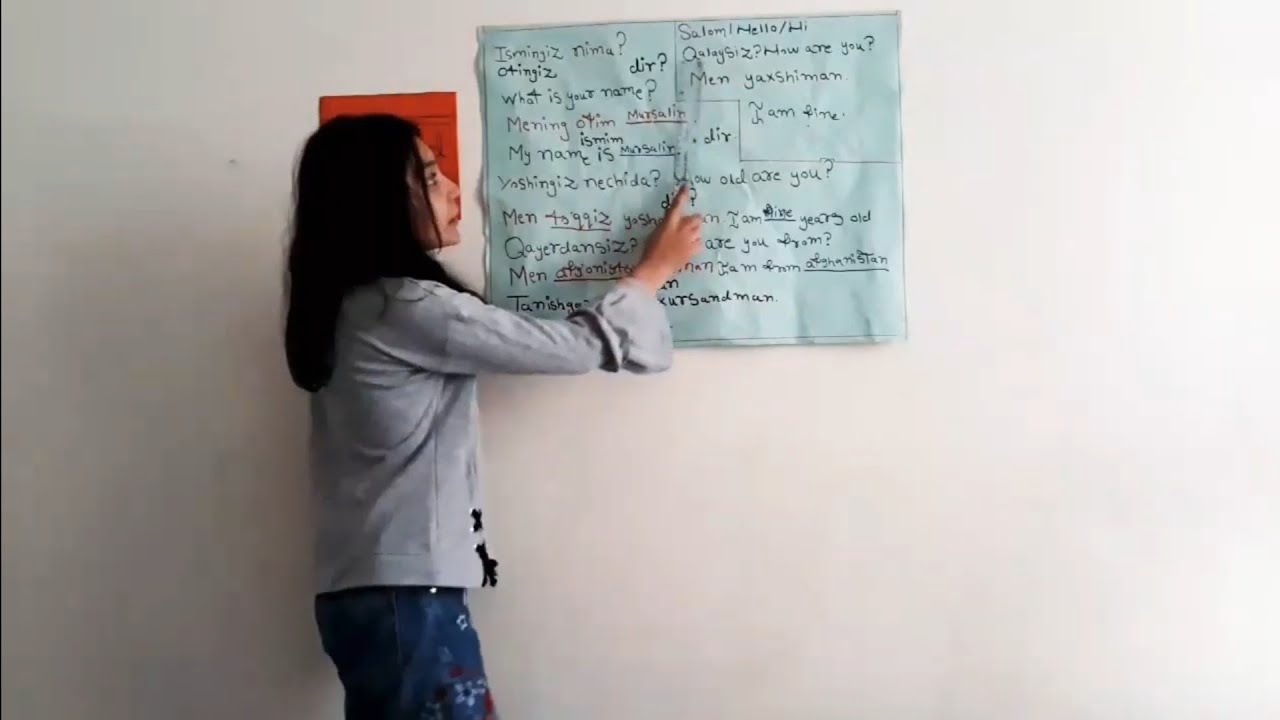 Ismingiz nima?
Otingiz dir?
What is your name?
Mening otim Mursalin.
ismim
My name is Mursalin. dir
Salom/Hello/Hi
Qalaysiz? How are you?
Men yaxshiman.
I am fine.
Yoshingiz nechida? How old are you?
Men to'qqiz I am nine years old
Qayerdansiz? are you from?
Men I am from afghanistan
xursandman.